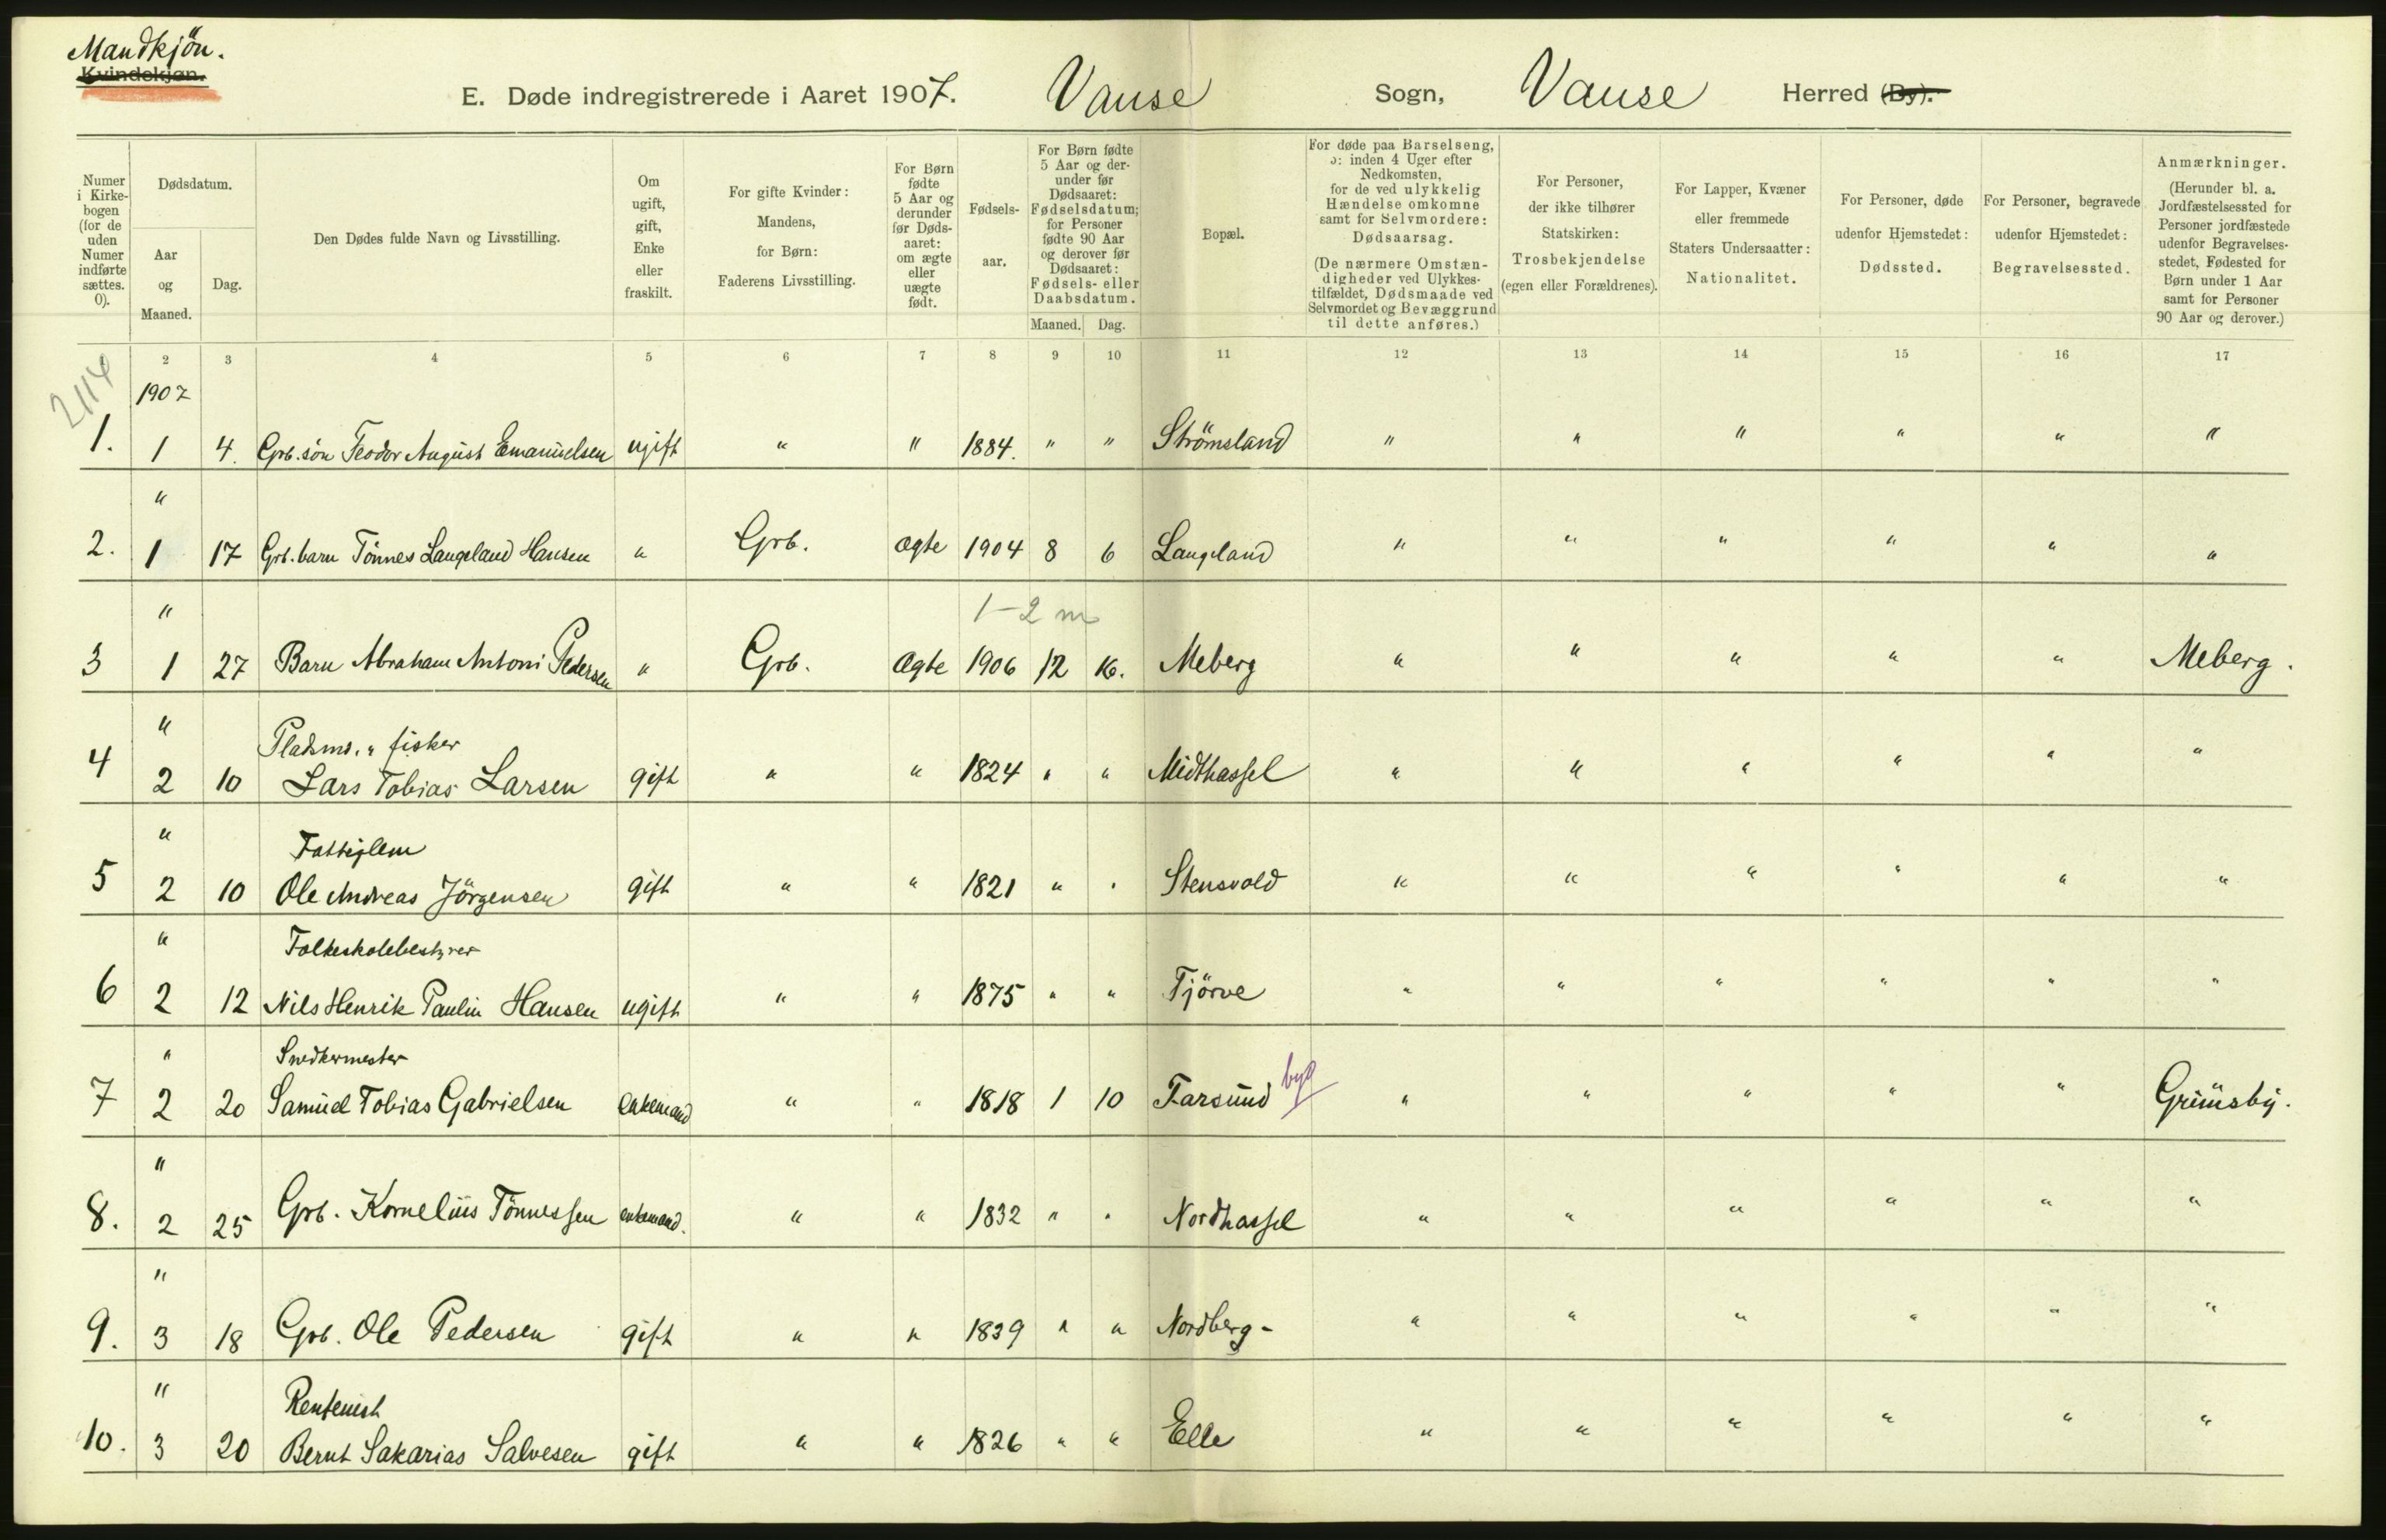 Mandkjön.
Kvindekjøn.
E. Døde indregistrerede i Aaret 1907. Vanse Sogn, Vanse Herred (By).
Numer i Kirkebogen (for de uden Numer indførte sættes. 0).
Dødsdatum.
Aar og Maaned.
Dag.
Den Dødes fulde Navn og Livsstilling.
Om ugift, gift, Enke eller fraskilt.
For gifte Kvinder: Mandens, for Børn: Faderens Livsstilling.
For Børn fødte 5 Aar og derunder før Dødsaaret: om ægte eller uægte født.
Fødselsaar.
For Børn fødte 5 Aar og derunder før Dødsaaret: Fødselsdatum; for Personer fødte 90 Aar og derover før Dødsaaret: Fødsels- eller Daabsdatum.
Maaned. Dag.
Bopæl.
For døde paa Barselseng, ɔ: inden 4 Uger efter Nedkomsten, for de ved ulykkelig Hændelse omkomne samt for Selvmordere: Dødsaarsag. (De nærmere Omstændigheder ved Ulykkestilfældet, Dødsmaade ved Selvmordet og Bevæggrund til dette anføres.)
For Personer, der ikke tilhører Statskirken: Trosbekjendelse (egen eller Forældrenes).
For Lapper, Kvæner eller fremmede Staters Undersaatter: Nationalitet.
For Personer, døde udenfor Hjemstedet: Dødssted.
For Personer, begravede udenfor Hjemstedet: Begravelsessted.
Anmærkninger. (Herunder bl. a. Jordfæstelsessted for Personer jordfæstede udenfor Begravelsesstedet, Fødested for Børn under 1 Aar samt for Personer 90 Aar og derover.)
2 3 4 5 6 7 8 9 10 11 12 13 14 15 16 17
2114
1907
1. 1 4. Grb. søn Teodor August Emanuelsen ugift " " 1884. " " Strömsland " " " " " "
"
2. 1 17 Grb. barn Tönnes Langeland Hansen " Grb. Ægte 1904 8 6 Langeland " " " " " "
" 1-2 m
3 1 27 Barn Abraham Antoni Pedersen " Grb. Ægte 1906 12 16. Meberg " " " " " Meberg.
" Pladsms. " fisker
4 2 10 Lars Tobias Larsen gift " " 1824 " " Midthassel " " " " " "
" Fattiglem
5 2 10 Ole Andreas Jörgensen gift " " 1821 " " Stensvold " " " " " "
" Folkeskolebestyrer
6 2 12 Nils Henrik Paulin Hansen ugift " " 1875 " " Tjörve " " " " " "
" Snedkermester
7 2 20 Samuel Tobias Gabrielsen enkemand " " 1818 1 10 Farsund byd " " " " " Grimsby.
"
8. 2 25 Grb. Kornelius Tönnessen enkemand. " " 1832 " " Nordhassel " " " " " "
"
9. 3 18 Grb. Ole Pedersen gift " " 1839 " " Nordberg - " " " " " "
" Rentenist
10. 3 20 Bernt Sakarias Salvesen gift " " 1826 " " Elle " " " " " "